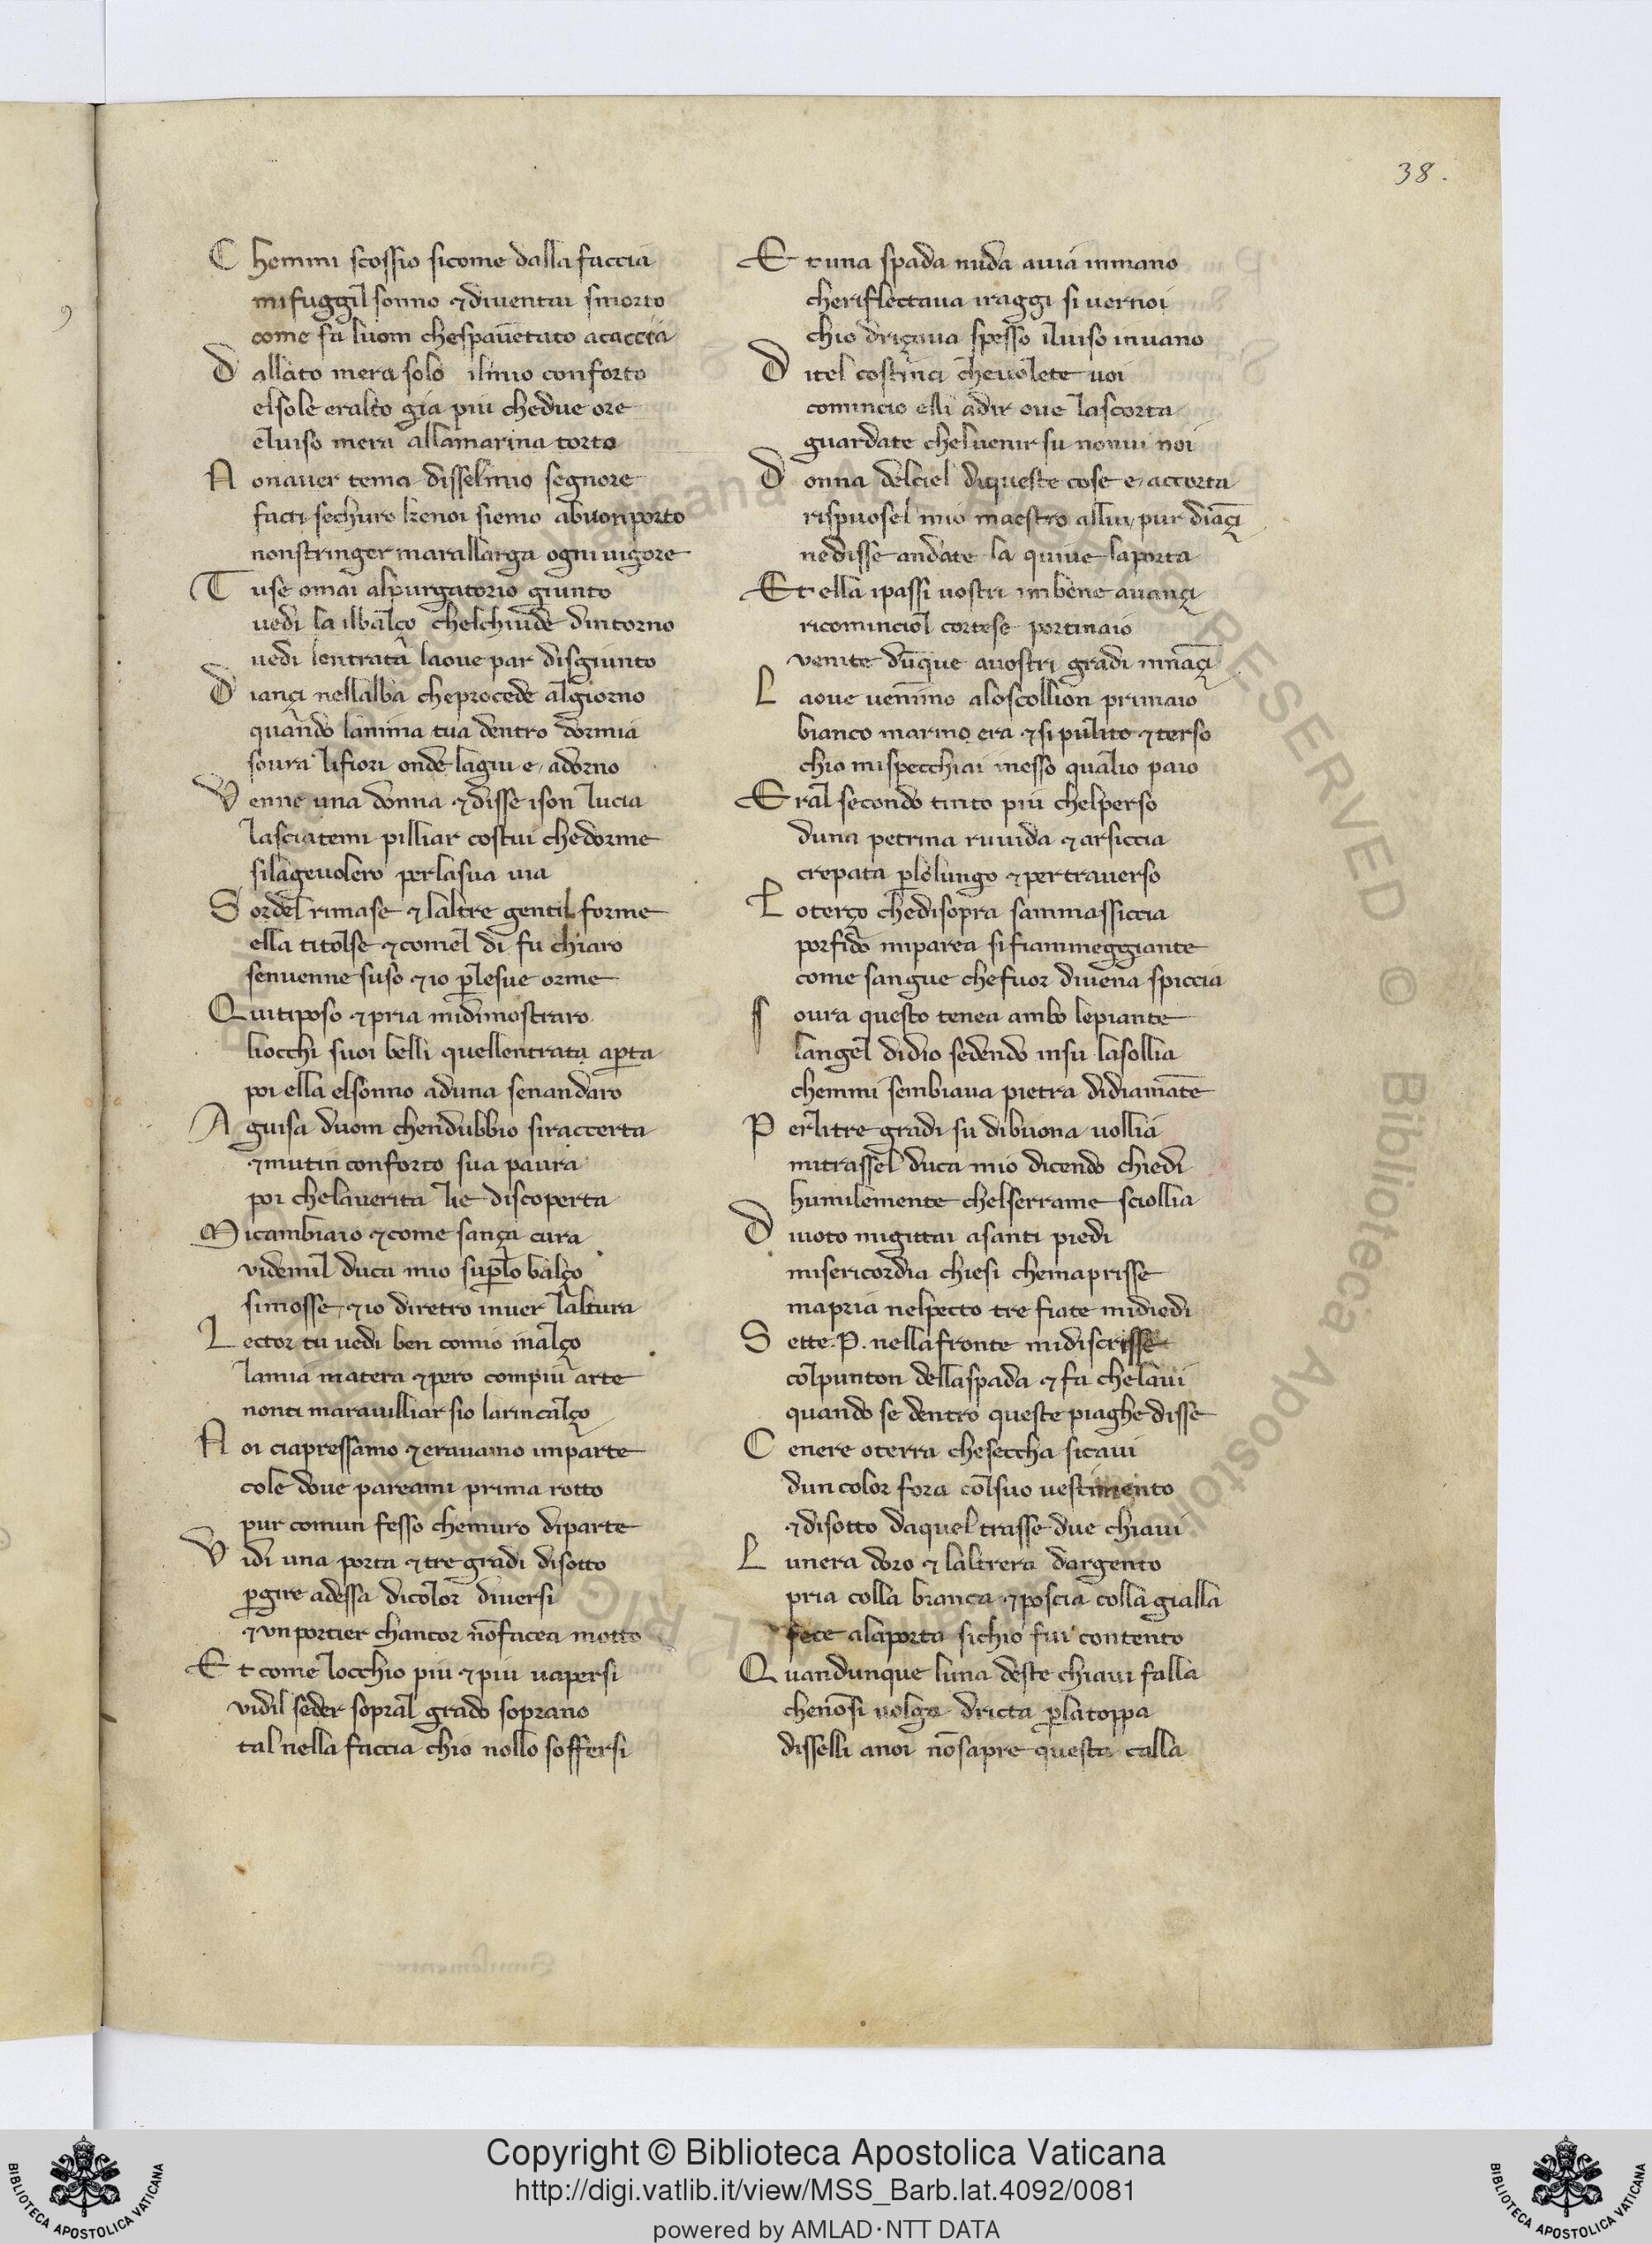 38.
C hemmi scossio sicome dalla faccia
mi fuggil sonno ⁊ diventai smorto
come fa luom chespaūetato acaccia
D allato mera solo ilmio conforto
elsole eralto gia piu chedue ore
elviso mera allamarina torto
N onaver tema disselmio segnore
facti sechuro kenoi siemo abuon porto
nonstringer marallarga ogni vigore
T use omai alpurgatorio giunto
vedi la ilbalço chelchiude dintorno
vedi lentrata laove par disgiunto
D iançi nellalba cheprocede algiorno
quando lanima tua dentro dormia
soura lifiori onde lagiu e adorno
V enne una donna ⁊ disse ison lucia
lasciatemi pilliar costui chedorme
silagevolero perlasua via
S ordel rimase ⁊ laltre gentil forme
ella titolse ⁊ comel di fu chiaro
senvenne suso ⁊ io ꝑlesue orme
Q uitiposo ⁊ pria midimostraro
liocchi suoi belli quellentrata aꝑta
poi ella elsonno aduna senandaro
A guisa duom chendubbio siraccerta
⁊ mutin conforto sua paura
poi chelaverita lie discoperta
M icambiaio ⁊ come sança cura
videmil duca mio suꝑlo balço
simosse ⁊ io diretro inver laltura
L ector tu vedi ben comio inalço
lamia matera ⁊ pero compiu arte
nonti maravilliar sio larincalço
N oi ciapressamo ⁊ eravamo imparte
cole dove pareami prima rotto
pur comun fesso chemuro diparte
V idi una porta ⁊ tre gradi disotto
ꝑgire adessa dicolor diversi
⁊ un portier chancor nōfacea motto
E t come locchio piu ⁊ piu vapersi
vidil seder sopral grado soprano
tal nella faccia chio nollo soffersi
E tuna spada nuda avia inmano
cheriflectava iraggi si vernoi
chio driçava spesso ilviso invano
D itel costinci chevolete voi
comincio elli adir ove lascorta
guardate chelvenir su nonvi noi
D onna delciel diqueste cose e accorta
rispuosel mio maestro allui pur diāçi
nedisse andate la quive laporta
E t ella ipassi vostri imbene avançi
ricominciol cortese portinaio
venite dūque avostri gradi innāçi
L aove venimmo aloscollion primaio
bianco marmo era ⁊ si pulito ⁊ terso
chio mispecchiai inesso qualio paio
E ral secondo tinto piu chelperso
duna petrina ruvida ⁊ arsiccia
crepata ꝑlolungo ⁊ pertraverso
L oterço chedisopra sammassiccia
porfido miparea si fiammeggiante
come sangue chefuor divena spiccia
S oura questo tenea ambo lepiante
langel didio sedendo insu lasollia
chemmi sembiava pietra didiamāte
P erlitre gradi su dibuona vollia
mitrassel duca mio dicendo chiedi
humilemente chelserrame sciollia
D ivoto migittai asanti piedi
misericordia chiesi chemaprisse
mapria nelpecto tre fiate midiedi
S ette .P. nellafronte midiscrisse
colpunton dellaspada ⁊ fa chelavi
quando se dentro queste piaghe disse
C enere oterra cheseccha sicavi
dun color fora colsuo vestimento
⁊ disotto daquel trasse due chiavi
L unera doro ⁊ laltrera dargento
pria colla bianca ⁊ poscia colla gialla
fece alaporta sichio fui contento
Q uandunque luna deste chiavi falla
chenōsi volga dricta ꝑlatoppa
disselli anoi nōsapre questa calla
Copyright © Biblioteca Apostolica Vaticana
http://digi.vatlib.it/view/MSS_Barb.lat.4092/0081
powered by AMLAD·NTT DATA
BIBLIOTECA APOSTOLICA VATICANA
BIBLIOTECA APOSTOLICA VATICANA